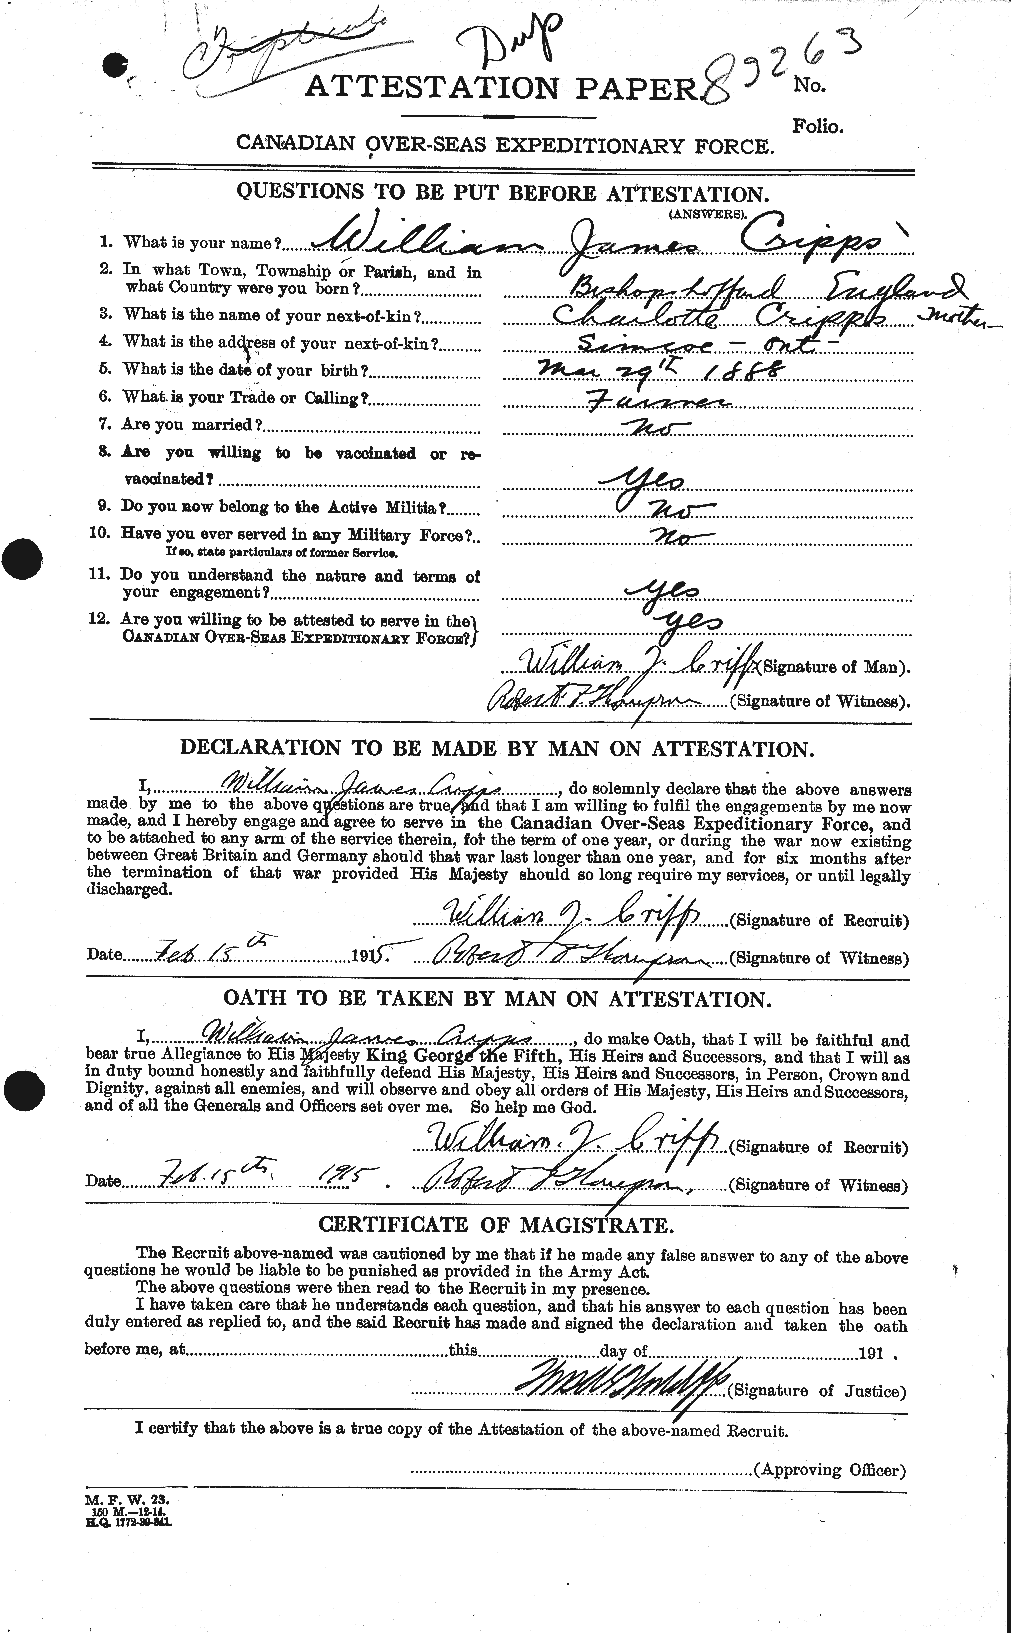 Triplicate
Dup
ATTESTATION PAPER.
No. 89263
Folio.
CANADIAN OVER-SEAS EXPEDITIONARY FORCE.
QUESTIONS TO BE PUT BEFORE ATTESTATION.
(ANSWERS).
1. What is your name? William James Cripps
2. In what Town, Township or Parish, and in
what Country were you born? Bishop Lofford England
3. What is the name of your next-of-kin? Charlotte Cripps Mother
4. What is the address of your next-of-kin? Simcoe - Ont -
5. What is the date of your birth? Mar 29th 1888
6. What is your Trade or Calling? Farmer
7. Are you married? No
8. Are you willing to be vaccinated or re-
vaccinated? Yes
9. Do you now belong to the Active Militia? No
10. Have you ever served in any Military Force?.. No
If so, state particulars of former Service.
11. Do you understand the nature and terms of
your engagement? Yes
12. Are you willing to be attested to serve in the
CANADIAN OVER-SEAS EXPEDITIONARY FORCE? Yes
William J. Cripps (Signature of Man).
Robert F Thompson (Signature of Witness).
DECLARATION TO BE MADE BY MAN ON ATTESTATION.
I, William James Cripps, do solemnly declare that the above answers
made by me to the above questions are true, and that I am willing to fulfil the engagements by me now
made, and I hereby engage and agree to serve in the Canadian Over-Seas Expeditionary Force, and
to be attached to any arm of the service therein, for the term of one year, or during the war now existing
between Great Britain and Germany should that war last longer than one year, and for six months after
the termination of that war provided His Majesty should so long require my services, or until legally
discharged.
William J. Cripps (Signature of Recruit)
Date Feb 15th 1915. Robert F Thompson (Signature of Witness)
OATH TO BE TAKEN BY MAN ON ATTESTATION.
I, William James Cripps, do make Oath, that I will be faithful and
bear true Allegiance to His Majesty King George the Fifth, His Heirs and Successors, and that I will as
in duty bound honestly and faithfully defend His Majesty, His Heirs and Successors, in Person, Crown and
Dignity, against all enemies, and will observe and obey all orders of His Majesty, His Heirs and Successors,
and of all the Generals and Officers set over me. So help me God.
William J. Cripps (Signature of Recruit)
Date Feb. 15th. 1915. Robert F Thompson, (Signature of Witness)
CERTIFICATE OF MAGISTRATE.
The Recruit above-named was cautioned by me that if he made any false answer to any of the above
questions he would be liable to be punished as provided in the Army Act.
The above questions were then read to the Recruit in my presence.
I have taken care that he understands each question, and that his answer to each question has been
duly entered as replied to, and the said Recruit has made and signed the declaration and taken the oath
before me, at this day of 191 .
(Signature of Justice)
I certify that the above is a true copy of the Attestation of the above-named Recruit.
(Approving Officer)
M. F. W. 23.
150 M.-12-14.
H.Q. 1772-39-841.